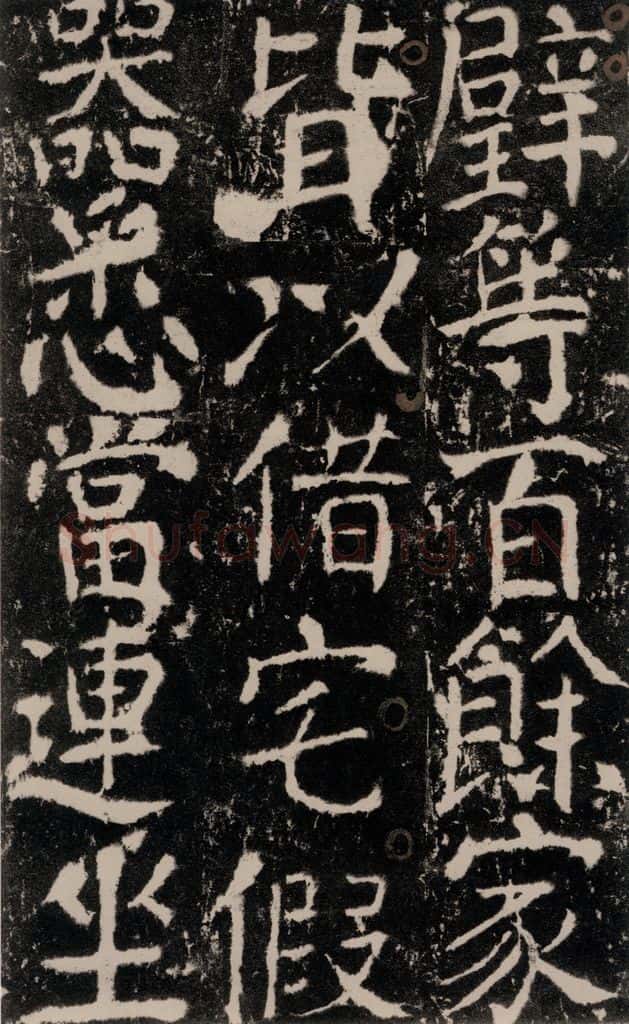 璧等百餘家
皆以借宅假
器悉當連坐
Shufawang.CN